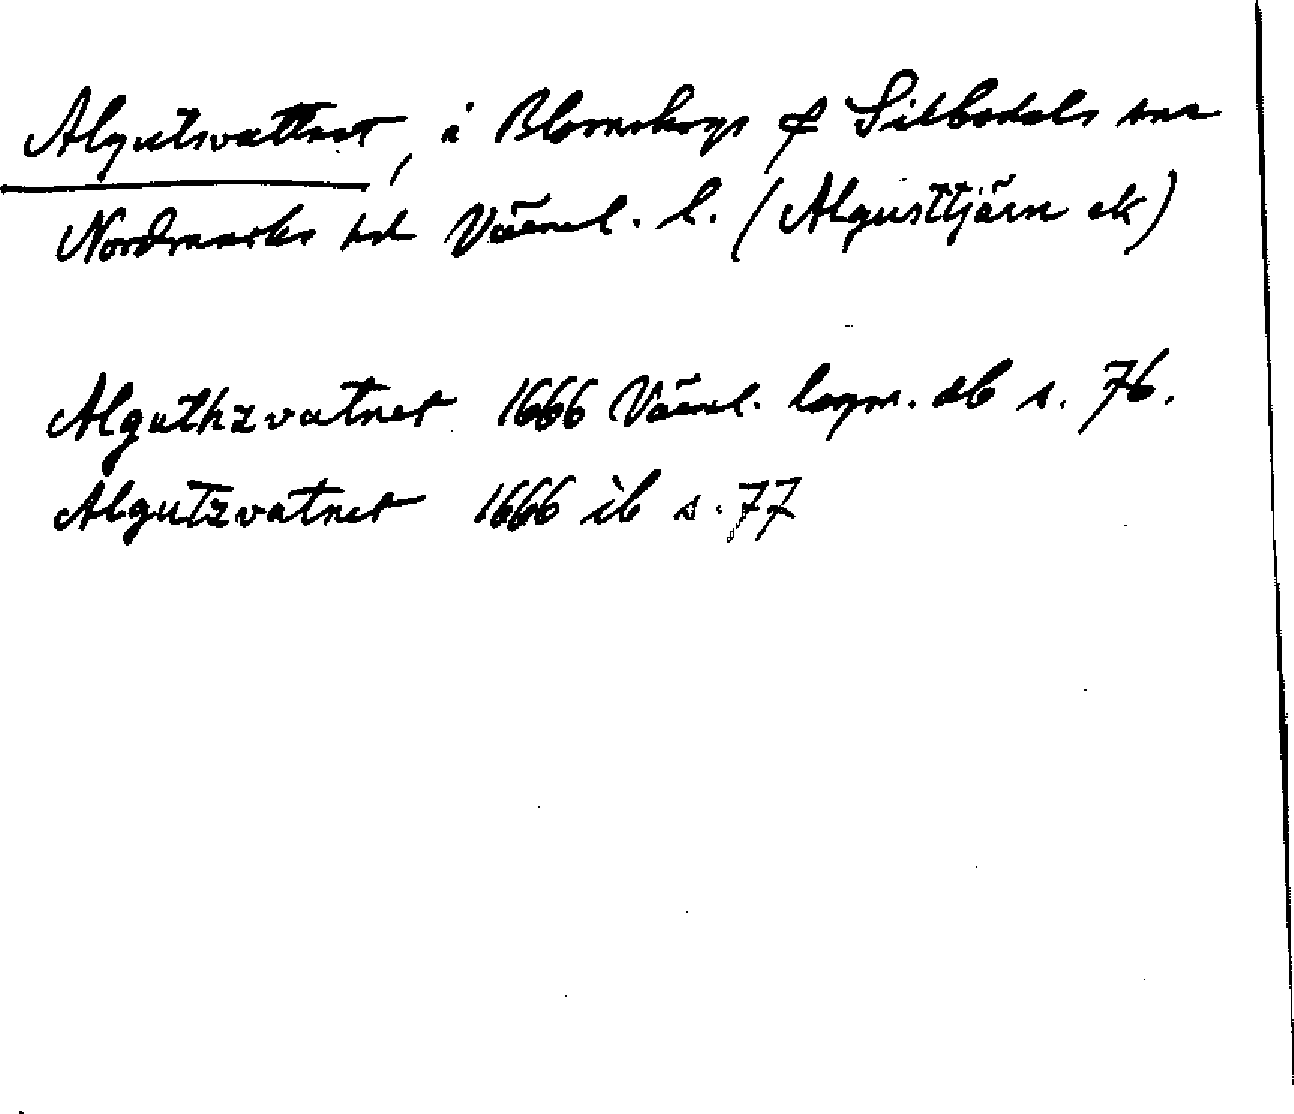 Algutsvattnet, i Blomskogs & Silbodals snr
Nordmarks hd Värml. l. (Algusttjärn ek)
Alguthzvatnet 1666 Värml. lagm. db s. 76.
Algutzvatnet 1666 ib s. 77